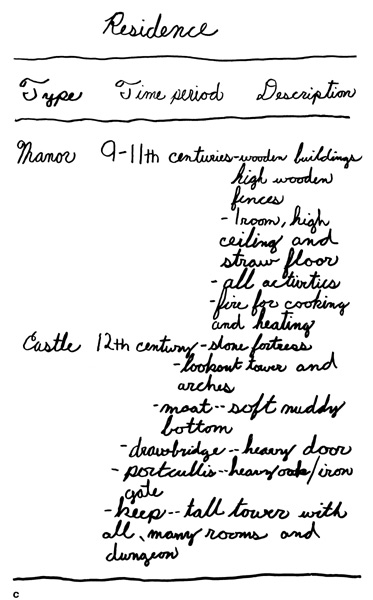 Residence
Type Time period Description
Manor 9-11th centuries-wooden buildings
high wooden
fences
-1room, high
ceiling and
straw floor
- all activities
-fire for cooking
and heating
Castle 12th century -stone fortress
-lookout tower and
arches
-moat--soft muddy
bottom
-drawbridge--heavy door
-portcullis--heavy oak/iron
gate
-keep--tall tower with
all, many rooms and
dungeon
c